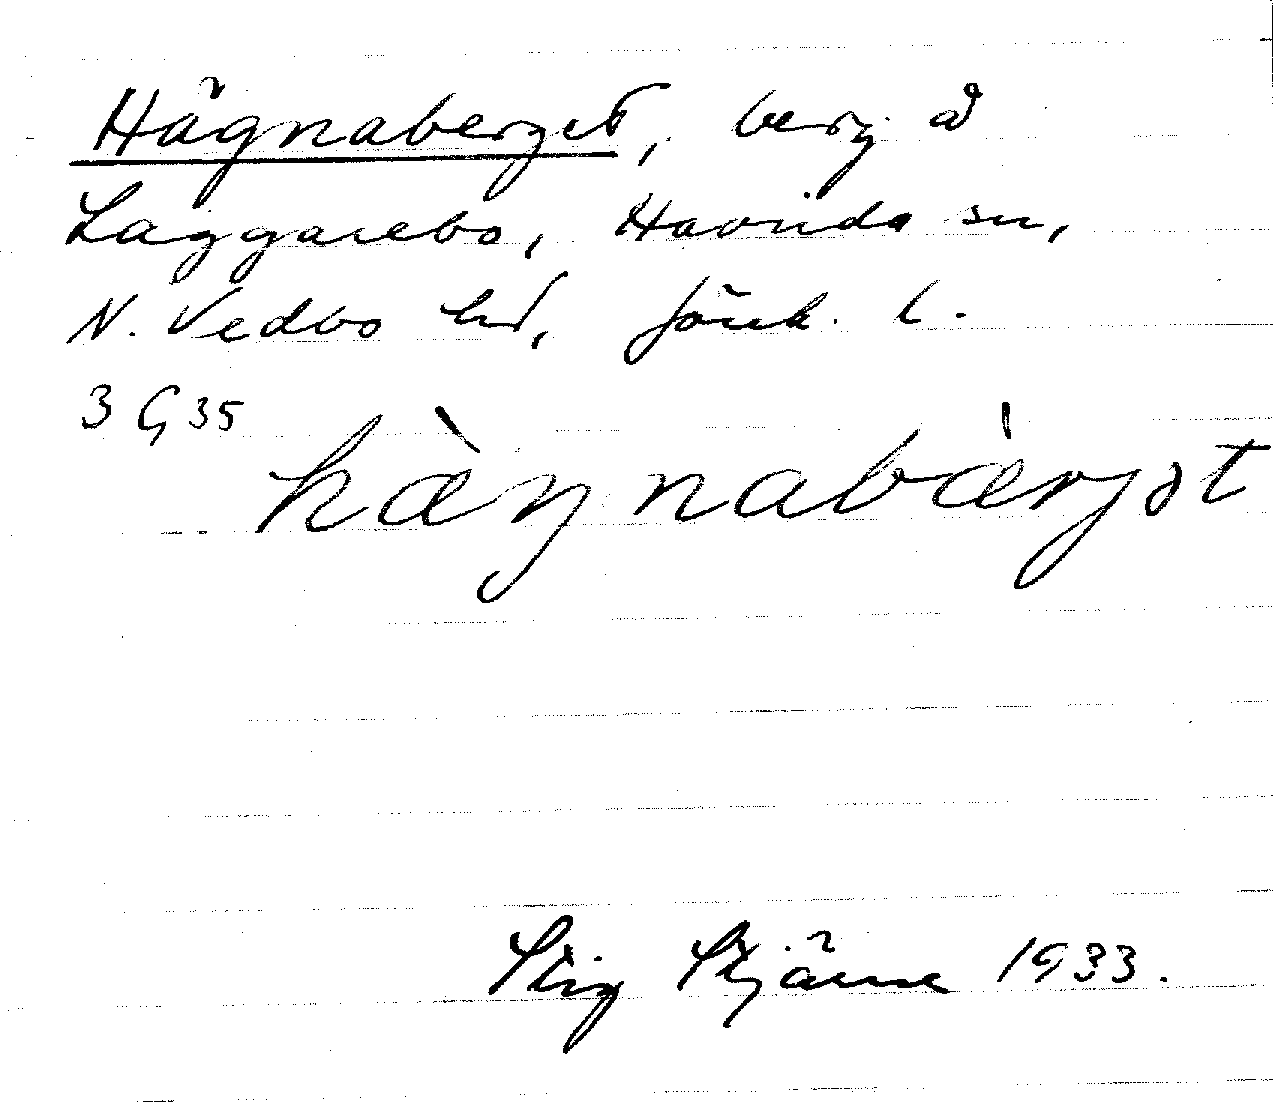 Hägnaberget, berg å
Laggarebo, Haurida sn,
N. Vedbo hd, Jönk. l.
3 G 35
hæ̀ŋnabærjət
Stig Stjärne 1933.